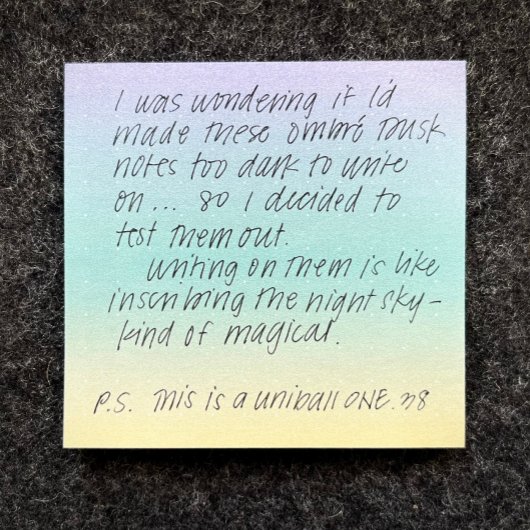 I was wondering if I'd
made these ombré Dusk
notes too dark to write
on... so I decided to
test them out.
Writing on them is like
inscribing the night sky–
kind of magical.
P.S. This is a uniball ONE .38